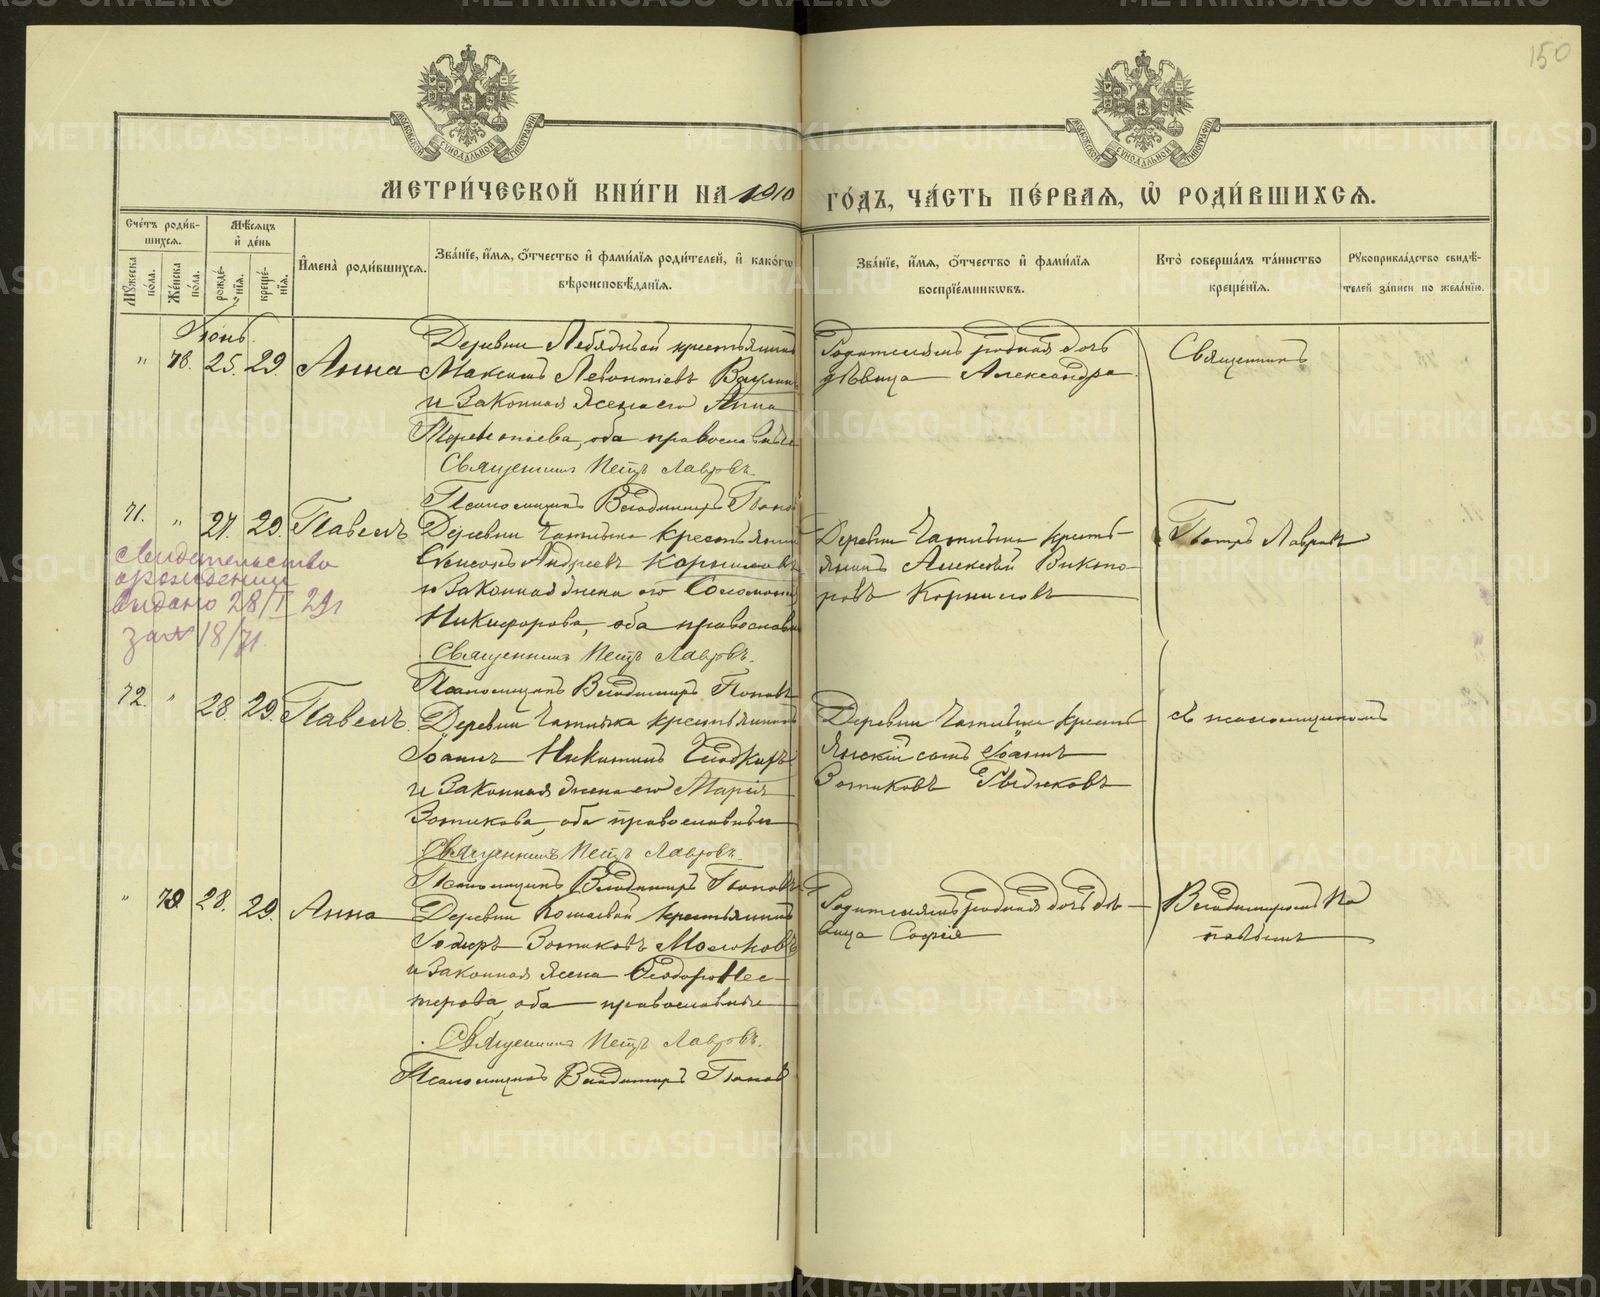 150
МОСКОВСКОЙ СѴНОДАЛЬНОЙ ТИПОГРАФІИ
МОСКОВСКОЙ СѴНОДАЛЬНОЙ ТИПОГРАФІИ
МЕТРИ́ЧЕСКОЙ КНИ́ГИ НА 1910 ГО́ДЪ, ЧА́СТЬ ПЕ́РВАЯ, Ѡ҆ РОДИ́ВШИХСЯ.
Сче́тъ роди́в-
шихся.
Мѣ́сяцъ
и҆ де́нь
Мꙋжеска по́ла.
Же́нска по́ла.
рожде́-
нїя.
креще́-
нїя.
И҆мена̀ роди́вшихся.
Зва́нїе, и҆́мя, ѻ҆́тчество и҆ фами́лїя роди́телей, и҆ како́гѡ
вѣроисповѣ́данїя.
Зва́нїе, и҆́мя, ѻ҆́тчество и҆ фами́лїя
воспрїе́мникѡвъ.
Кто̀ соверша́лъ та́инство
креще́нїя.
Рꙋкоприкла́дство свидѣ́-
телей за́писи по жела́нїю.
Іюнь.
" 78. 25. 29. Анна
Деревни Лебядкъ крестьянинъ
Максимъ Левонтіевъ
и законная жена его Анна
Терентьева, оба православные
Священникъ Петръ Лавровъ
Псаломщикъ Владимиръ Попов
Родителямъ родная дочь
дѣвица Александра
Священникъ
71. " 27. 29. Павелъ
свидетельство
о рождении
выдано 28/I 29 г
за № 18/71
Деревни крестьянин
Андреевъ Корниловъ
и законная жена его Соломонія
Никифорова, оба православны
Священникъ Петръ Лавровъ.
Псаломщикъ Владимиръ Поповъ
Деревни кресть-
янинъ Алексѣй Викто-
ровъ Корниловъ
Петръ Лавровъ
72. " 28. 29. Павелъ.
Деревни крестьянинъ
Іоаннъ Никитинъ
и законная жена его Марія
Зотикова, оба православные
Священникъ Петръ Лавровъ.
Псаломщикъ Владимиръ Поповъ
Деревни кресть
янскій сынъ Іоаннъ
Зотиковъ
съ псаломщикомъ
" 79 28. 29. Анна
Деревни крестьянинъ
Зотиковъ Молоковъ
и законная жена Ѳеодора Нес-
терова, оба православные
Священникъ Петръ Лавровъ.
Псаломщикъ Владимиръ Попов
Родителямъ родная дочь дѣ-
вица Софія
Владимиромъ По
повымъ
METRIKI.GASO-URAL.RU